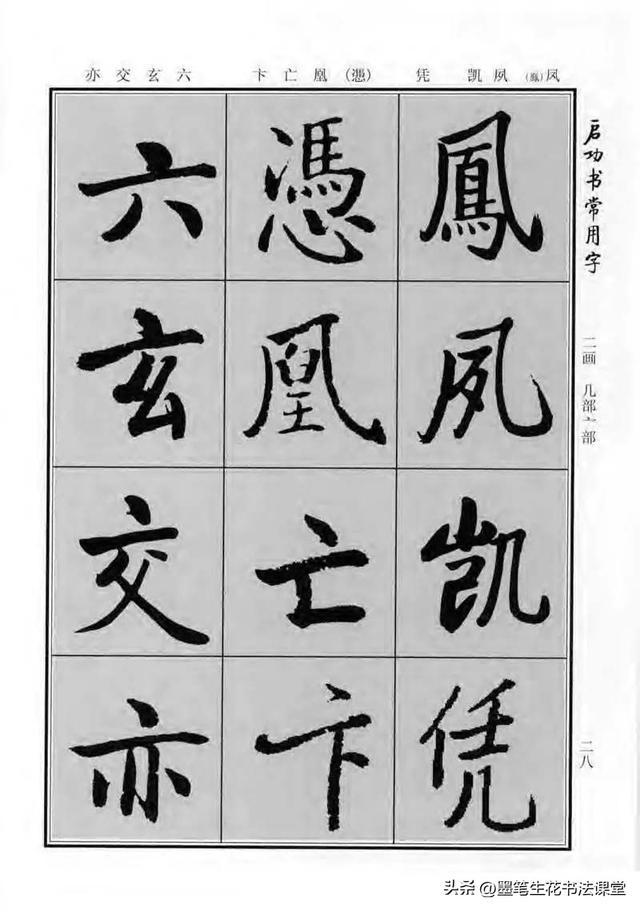 凤(鳳) 夙 凯 凭 (憑) 凰 亡 卞 六 玄 交 亦
启功书常用字
二画 几部亠部
二八
鳳夙凯凭
憑凰亡卞
六玄交亦
头条 @墨笔生花书法课堂